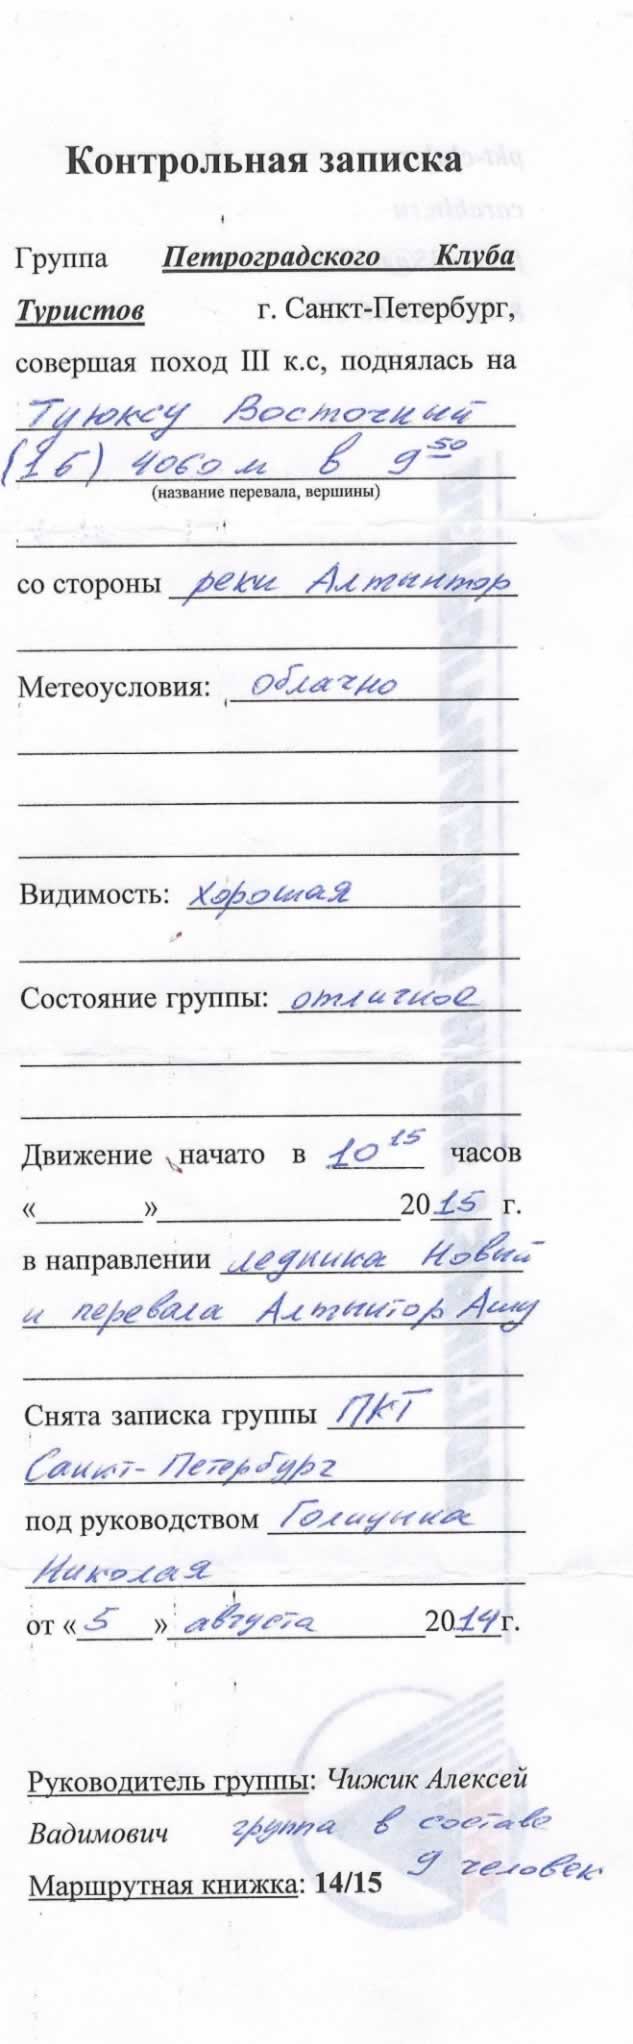 Контрольная записка
Группа Петроградского Клуба
Туристов г. Санкт-Петербург,
совершая поход III к.с, поднялась на
Туюксу Восточный
(1б) 4060 м в 9 50
(название перевала, вершины)
со стороны реки Алтынтор
Метеоусловия: Облачно
Видимость: хорошая
Состояние группы: отличное
Движение начато в 10 15 часов
«___»___2015 г.
в направлении ледника Новый
и перевала Алтынтор Ашу
Снята записка группы ПКТ
Санкт-Петербург
под руководством Голицына
Николая
от «5» августа 2014г.
Руководитель группы: Чижик Алексей
Вадимович группа в составе
9 человек
Маршрутная книжка: 14/15